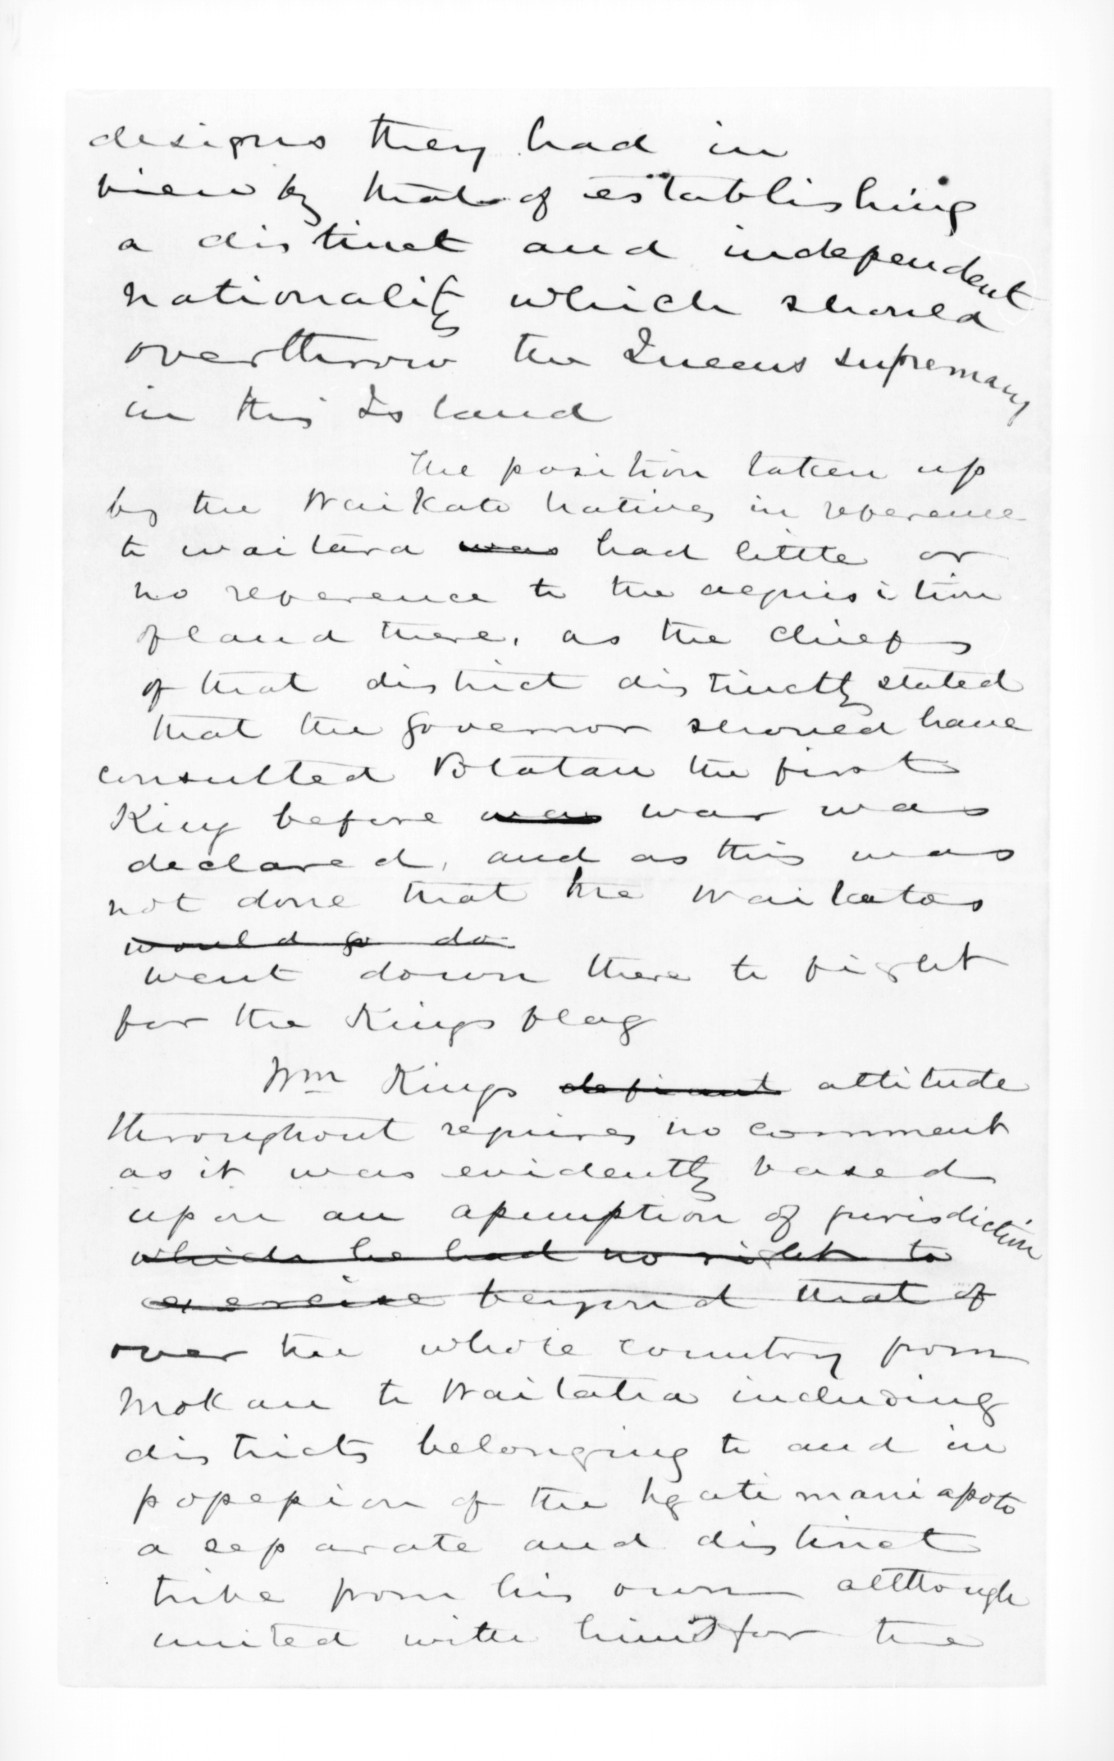 designs they had in
view by that of establishing
a distinct and independent
nationality which should
overthrow the Queens supremacy
in this Island
The position taken up
by the Waikato natives in reference
to waitara was had little or
no reference to the acquisition
of land there, as the chiefs
of that district distinctly stated
that the Governor should have
consulted Potatau the first
King before was war was
declared, and as this was
not done that the Waikatos
would go do
went down there to fight
for the Kings flag
Wm Kings defiant attitude
throughout requires no comment
as it was evidently based
upon an assumption of jurisdiction
which he had no right to
exercise beyond that of
over the whole country from
Mokau to Waitaha including
districts belonging to and in
possession of the Ngatimaniapoto
a separate and distinct
tribe from his own although
united with him for the